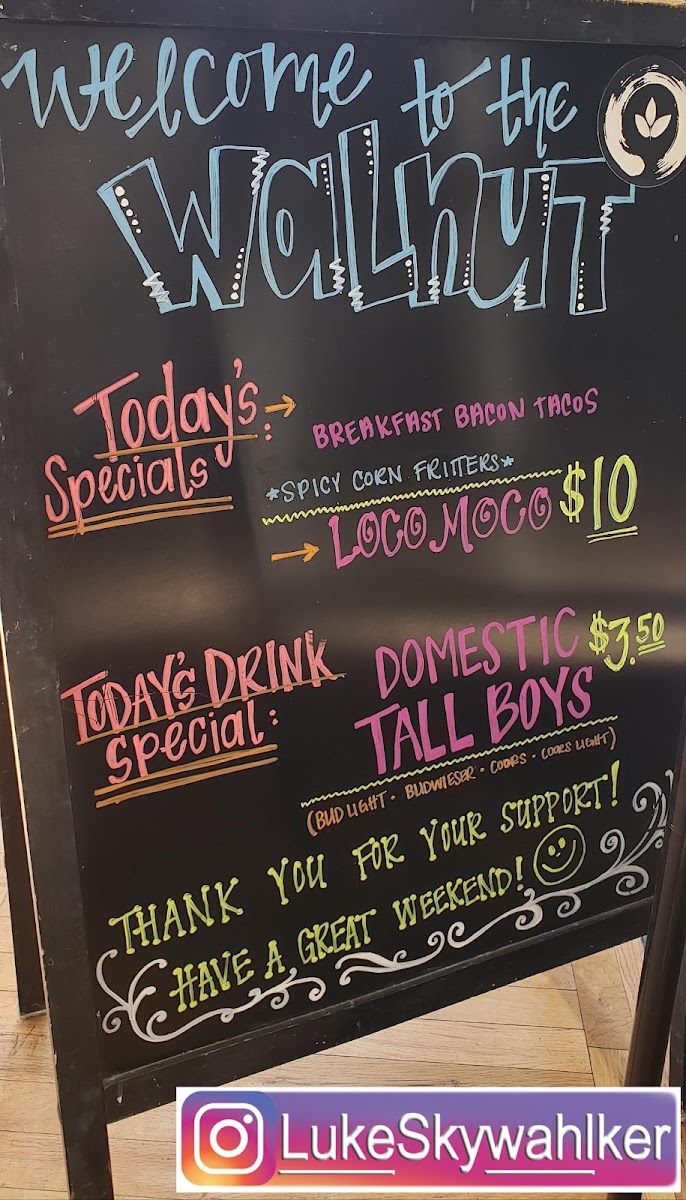 Welcome to the
Walnut
Today's
Specials :
BREAKFAST BACON TACOS
*SPICY CORN FRITTERS*
LOCO MOCO $10
TODAY'S DRINK
Special:
DOMESTIC $3.50
TALL BOYS
(BUD LIGHT • BUDWIESER • COORS • COORS LIGHT)
THANK YOU FOR YOUR SUPPORT!
HAVE A GREAT WEEKEND!
LukeSkywahlker